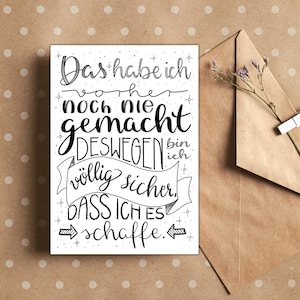 Das habe ich
vorher
noch nie
gemacht
DESWEGEN bin
ich
völlig sicher,
DASS ICH ES
schaffe.